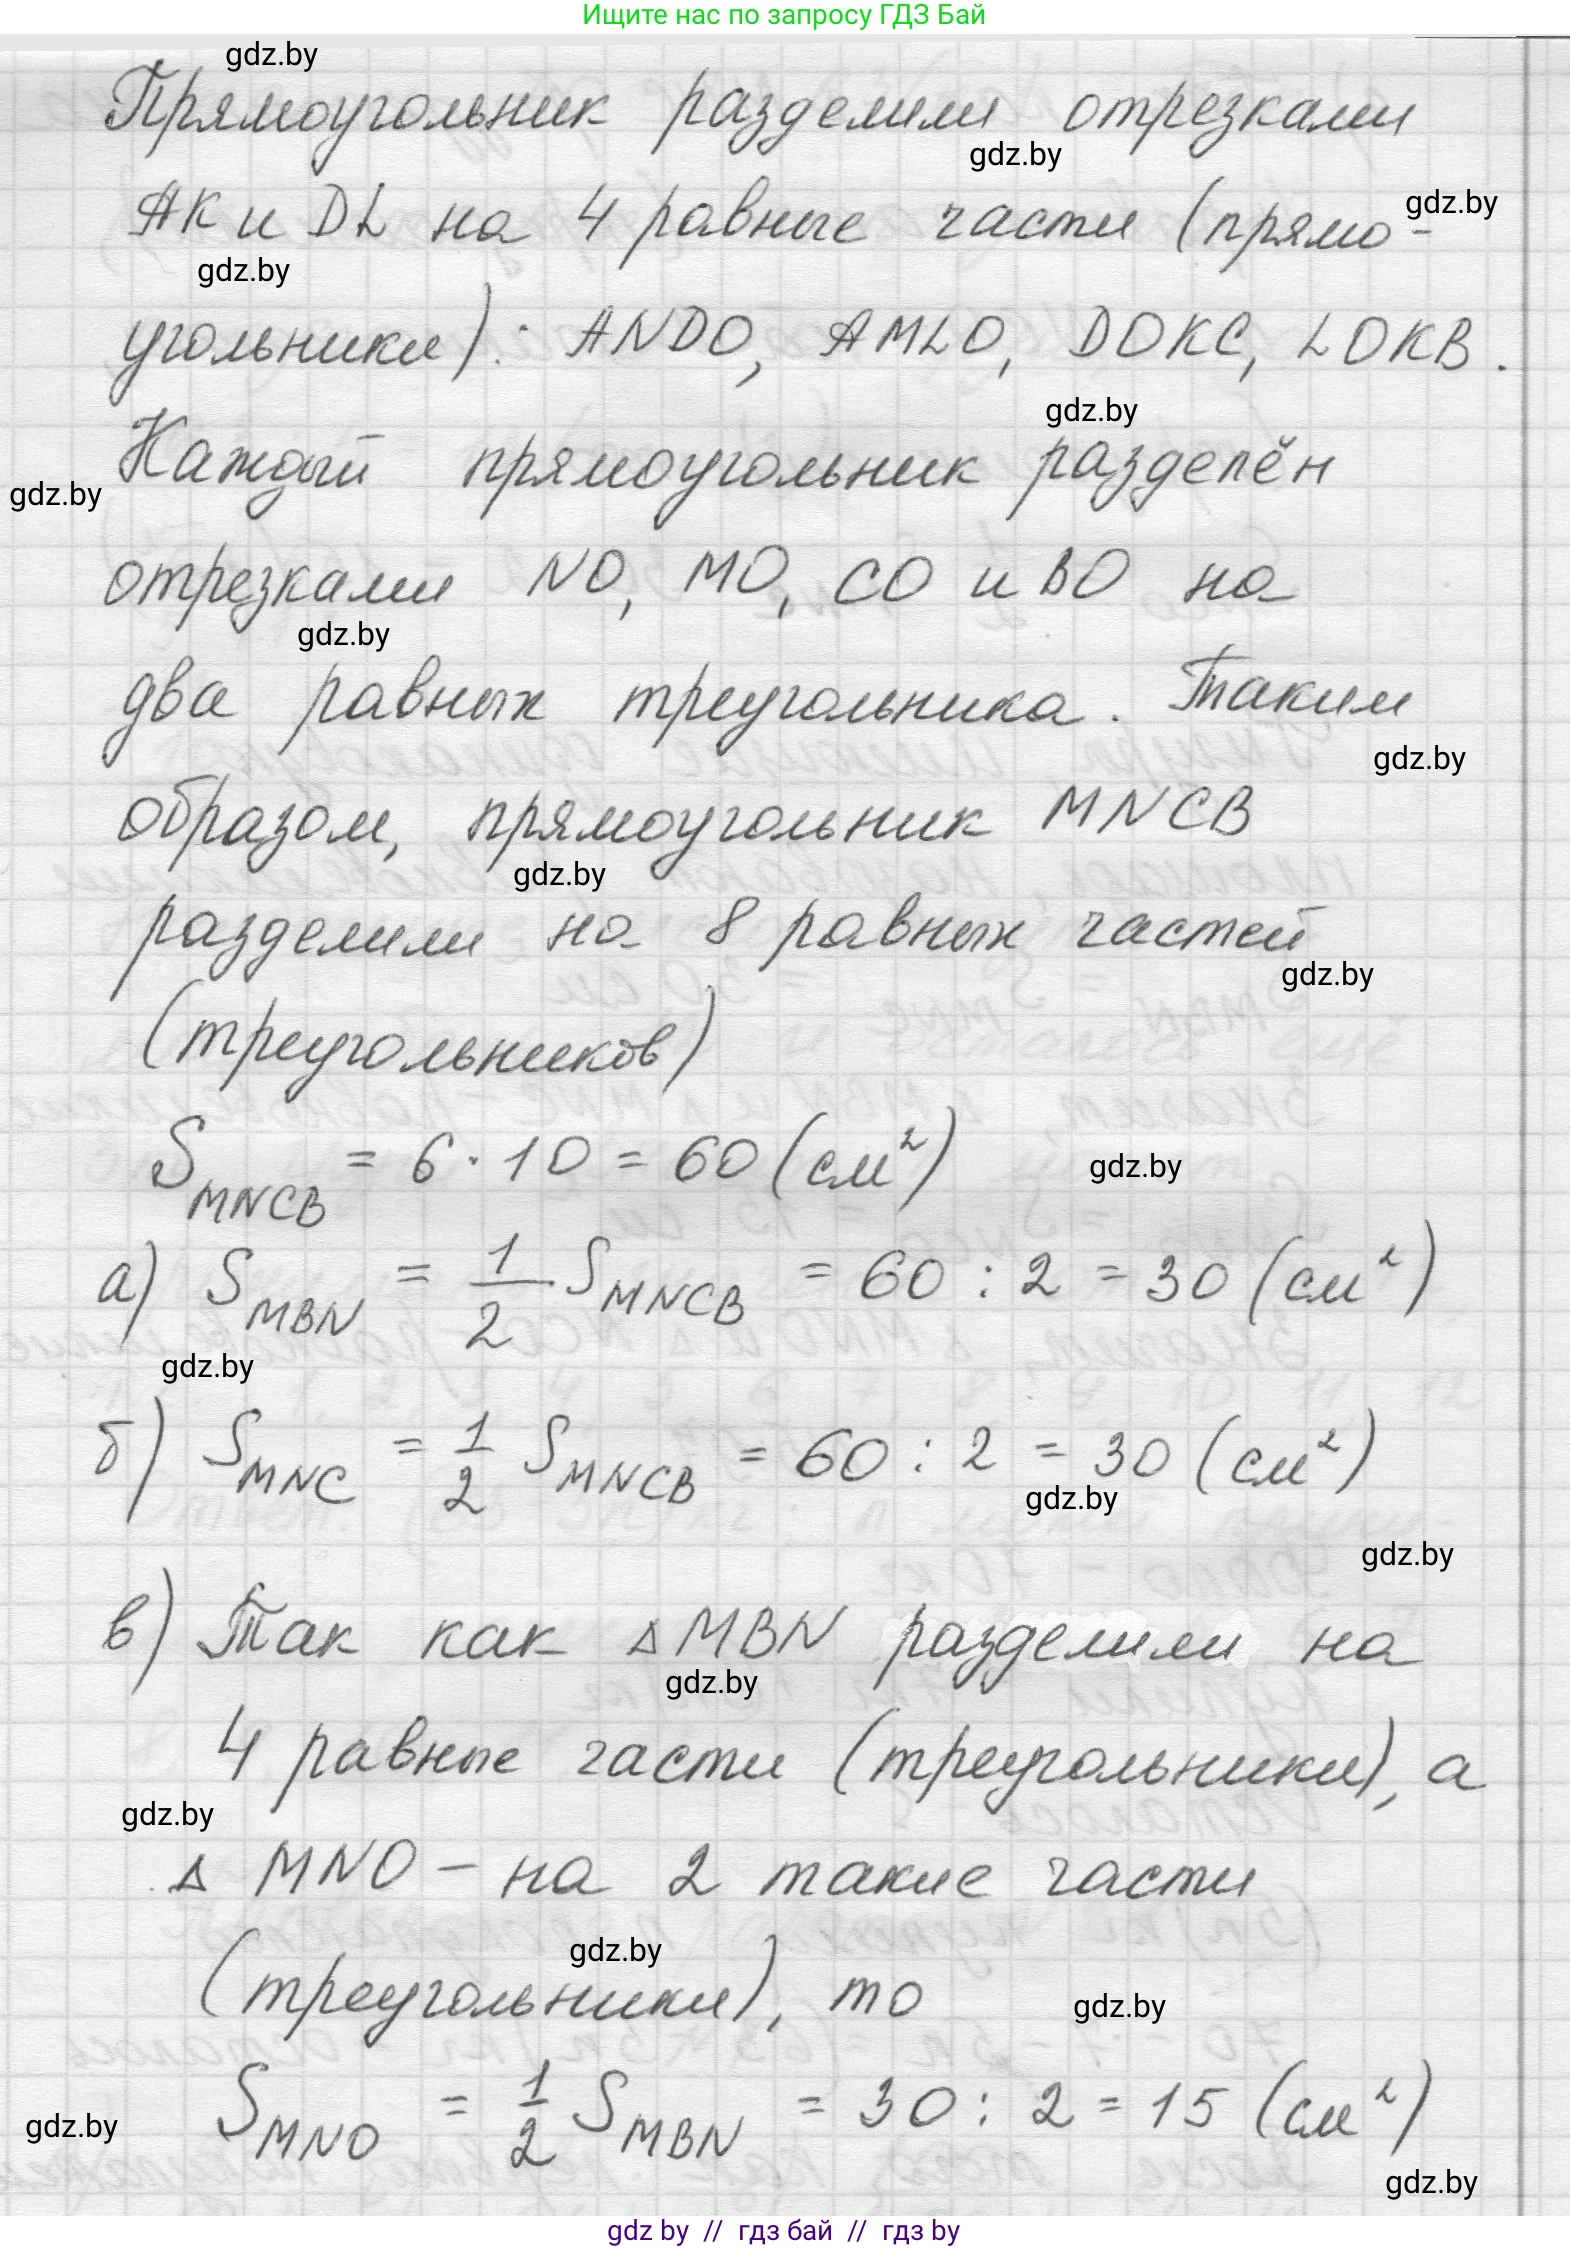 Ищите нас по запросу ГДЗ Бай
gdz.by
Прямоугольник разделили отрезками
gdz.by
АК и DL на 4 равные части (прямо-
gdz.by
gdz.by
угольники): ANDO, AMLO, DOKC, LOKB.
gdz.by
Каждый прямоугольник разделён
gdz.by
отрезками NO, MO, CO и BO на
gdz.by
два равных треугольника. Таким
gdz.by
образом, прямоугольник MNCB
gdz.by
разделили на 8 равных частей
gdz.by
(треугольников)
S MNCB = 6 · 10 = 60 (см²)
gdz.by
а) S MBN = 1/2 S MNCB = 60 : 2 = 30 (см²)
gdz.by
б) S MNC = 1/2 S MNCB = 60 : 2 = 30 (см²)
gdz.by
gdz.by
в) Так как △ MBN разделили на
gdz.by
4 равные части (треугольники), а
gdz.by
△ MNO – на 2 такие части
gdz.by
(треугольники), то
gdz.by
S MNO = 1/2 S MBN = 30 : 2 = 15 (см²)
gdz.by
gdz.by
gdz by // гдз бай // гдз by